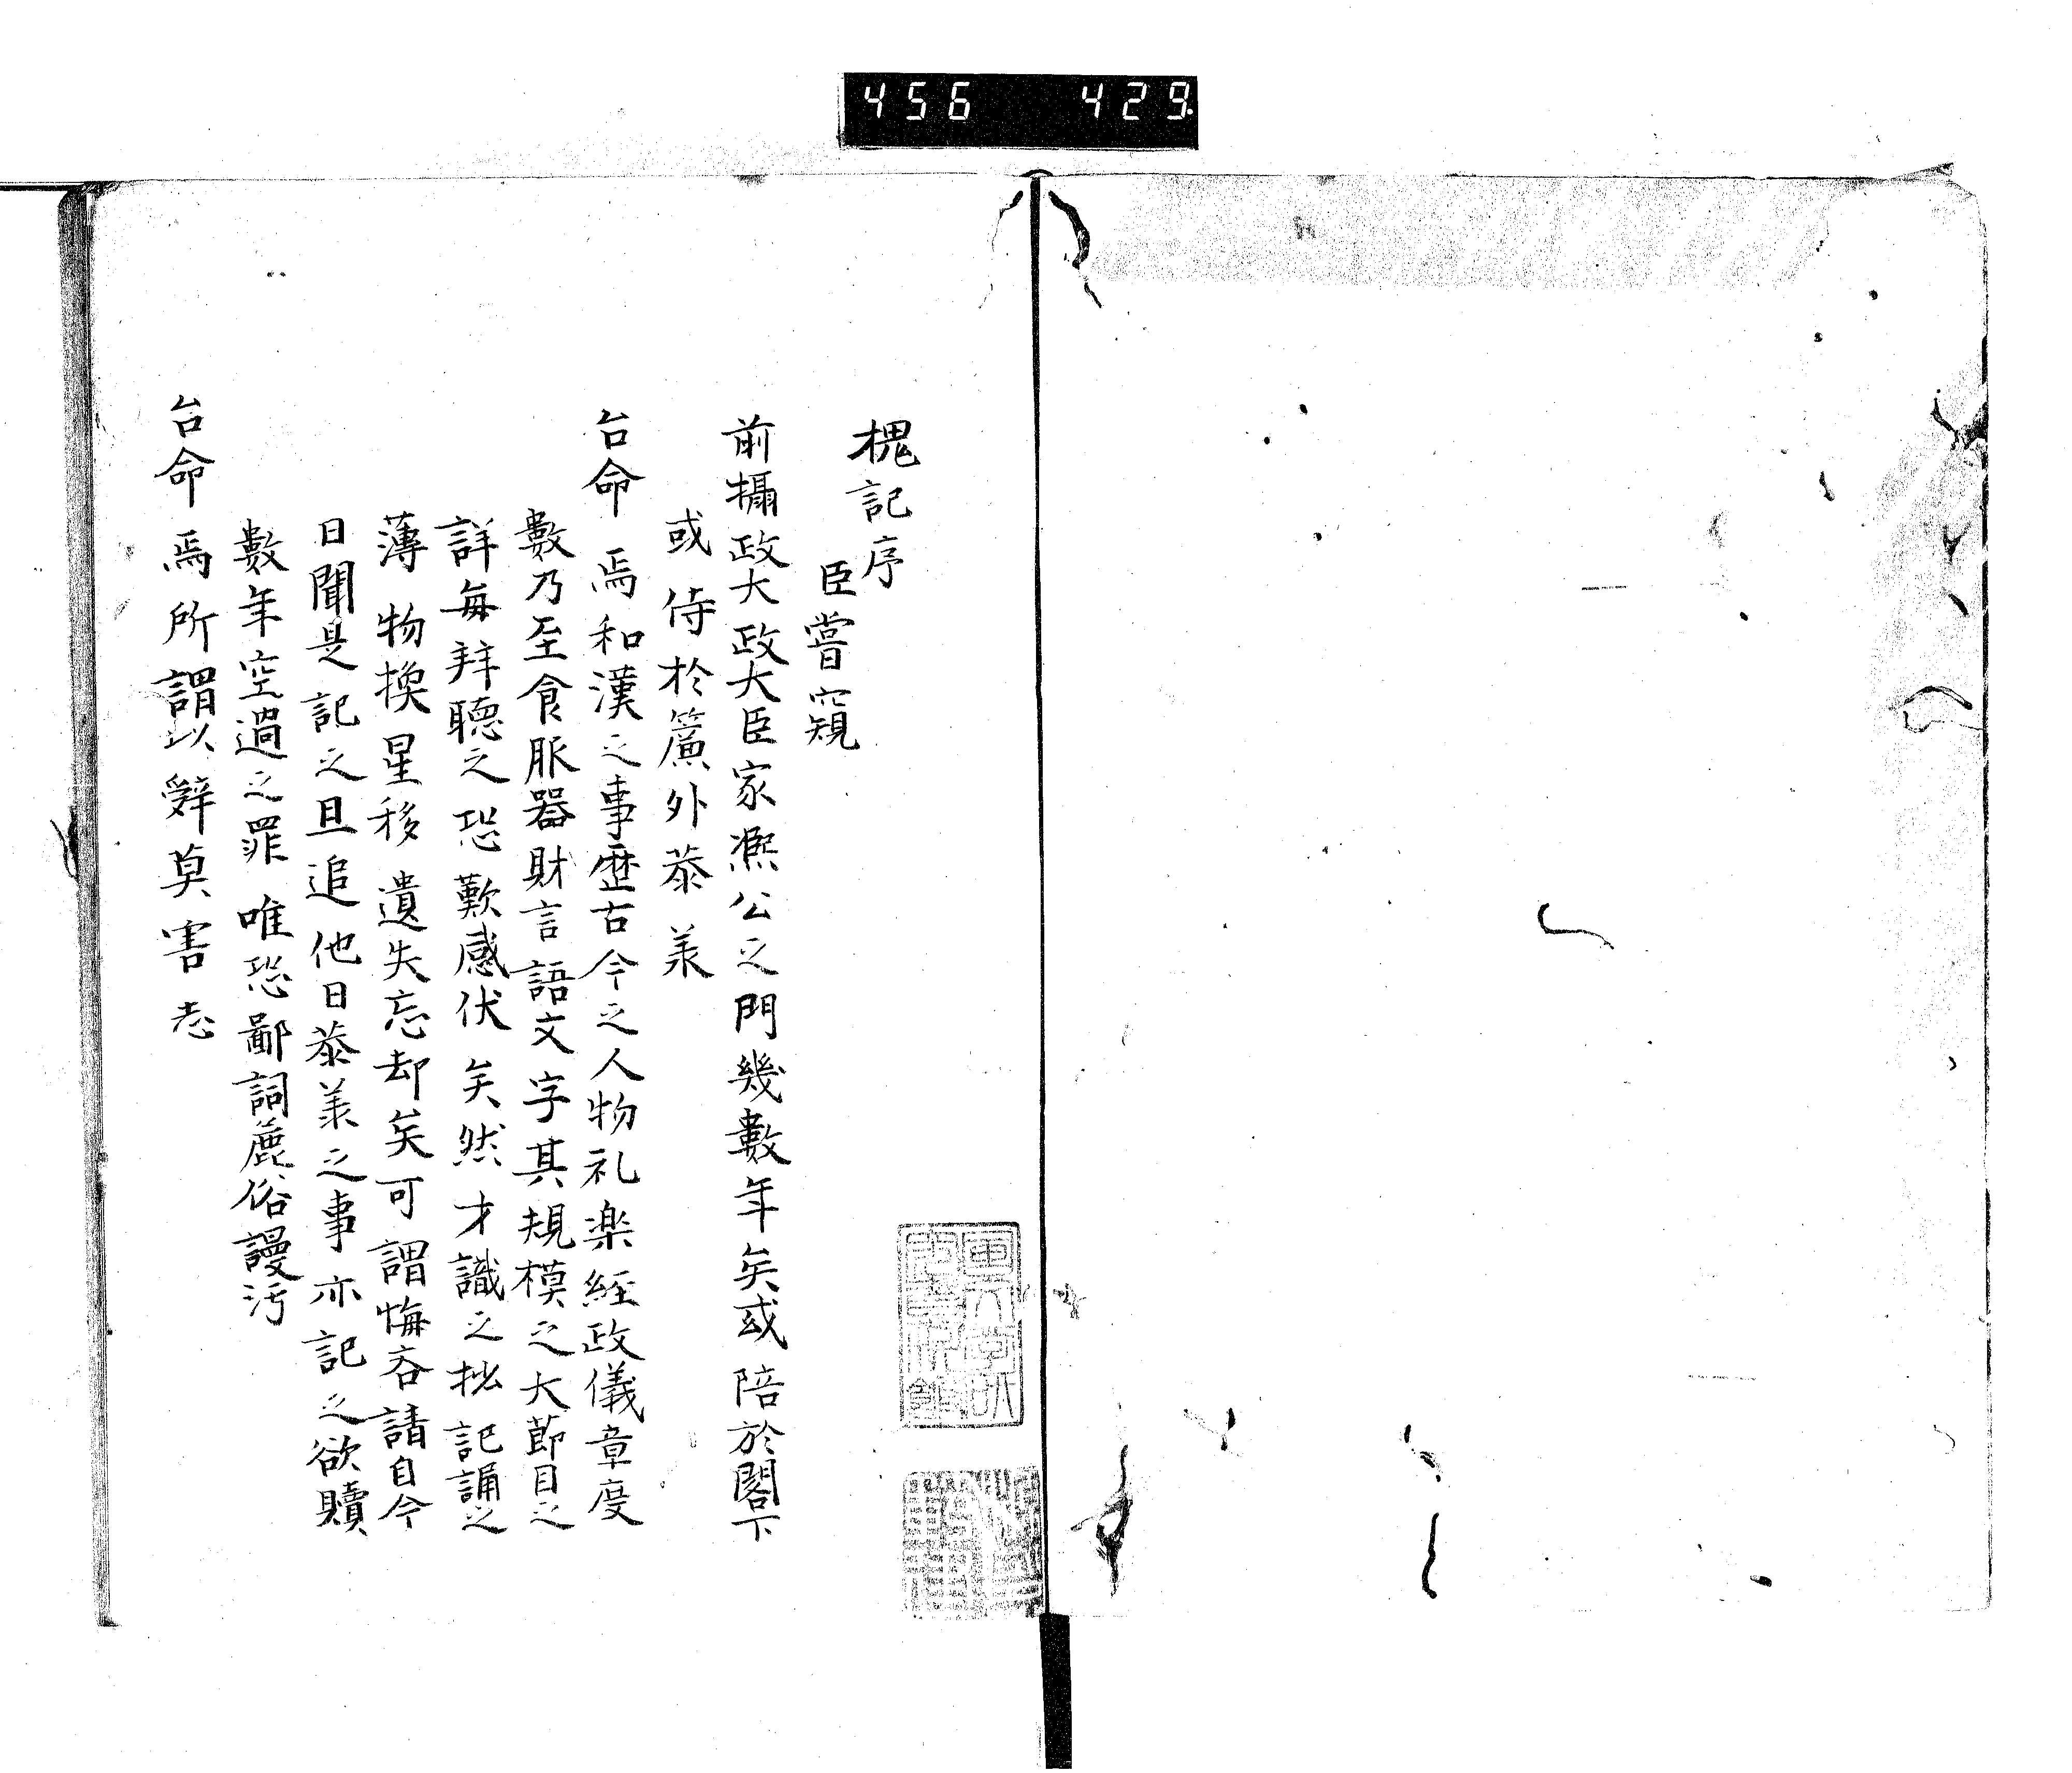 456 429
槐記序
臣嘗窺
前攝政大政大臣家凞公之門幾數年矣或陪於閣下
或侍於簾外恭羕
台命焉和漢之事歴古今之人物礼楽経政儀章度
數乃至食服器財言語文字其規模之大莭目之
詳毎拜聴之恐歎感伏矣然才識之拙記誦之
薄物換星移遺失忘却矣可謂悔吝請自今
日聞是記之且追他日恭羕之事亦記之欲贖
數年空過之罪唯恐鄙詞麁俗謾汚
台命焉所謂以辤莫害志